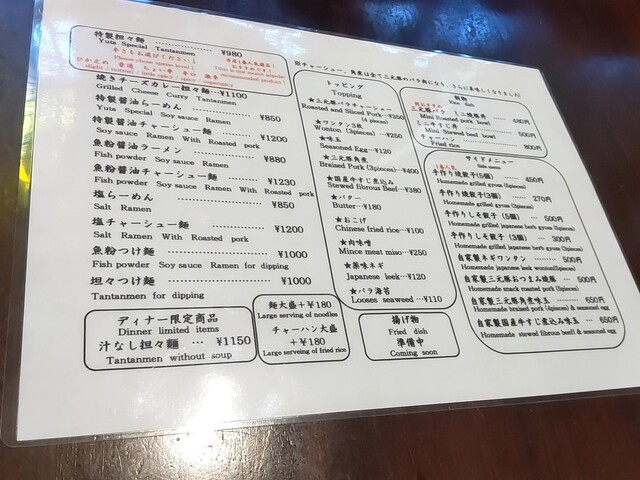 特製担々麺 ………… ¥980
Yuta Special Tantanmen
辛さもお選びください!
Please choose spice level!
ひかえめ 普通 ちょい辛 辛口 激辛
当店1番人気商品!
焼きチーズカレー担々麺…¥1100
Grilled Cheese Curry Tantanmen
特製醤油らーめん ……… ¥850
Yuta Special Soy sauce Ramen
特製醤油チャーシュー麺 … ¥1200
Soy sauce Ramen With Roasted pork
魚粉醤油ラーメン ……… ¥880
Fish powder Soy sauce Ramen
魚粉醤油チャーシュー麺 … ¥1230
Fish powder Soy sauce Ramen With Roasted pork
塩らーめん ………… ¥850
Salt Ramen
塩チャーシュー麺 ……… ¥1200
Salt Ramen With Roasted pork
魚粉つけ麺 ………… ¥1000
Fish powder Soy sauce Ramen for dipping
坦々つけ麺 ………… ¥1000
Tantanmen for dipping
ディナー限定商品
Dinner limited items
汁なし担々麺 … ¥1150
Tantanmen without soup
麺大盛+¥180
Large serving of noodles
チャーハン大盛
+¥180
Large serveing of fried rice
チャーシュー、角煮は全て三元豚のバラ肉になり、さらに美味しくなりました!
トッピング
Topping
★三元豚バラチャーシュー
Roasted and Sliced Pork…¥350
(4 pieces)
★ワンタン3枚
Wonton (3pieces)…¥250
★味玉
Seasoned Egg…¥120
★三元豚角煮
Braised Pork(3pieces)…¥400
★国産牛すじ煮込み
Stewed fibrous Beef…¥380
★バター
Butter…¥180
★おこげ
Chinese fried rice…¥100
★肉味噌
Mince meat miso…¥250
★薬味ネギ
Japanese leek…¥120
★バラ海苔
Looses seaweed…¥110
揚げ物
Fried dish
準備中
Coming soon
飯物
Rice dish
三元豚バラ ミニ焼豚丼
Mini Roasted pork bowl … 480円
ミニ牛すじ丼
Mini Stewed beef bowl … 500円
チャーハン
Fried rice … 800円
サイドメニュー
Side menu
1番人気
手作り焼餃子(5個) …… 450円
Homemade grilled gyoza (5pieces)
手作り焼餃子(3個) …… 270円
Homemade grilled gyoza (3pieces)
手作りしそ餃子(5個) … 500円
Homemade grilled japanese herb gyoza (5pieces)
手作りしそ餃子(3個) … 300円
Homemade grilled japanese herb gyoza (3pieces)
自家製ネギワンタン ……… 500円
Homemade japanese leek wonton(5pieces)
自家製三元豚おつまみ焼豚 … 500円
Homemade snack roasted pork (5pieces)
自家製三元豚角煮味玉 …… 650円
Homemade braised pork (3pieces) & seasoned egg
自家製国産牛すじ煮込み味玉 … 650円
Homemade stewed fibrous beeff & seasoned egg